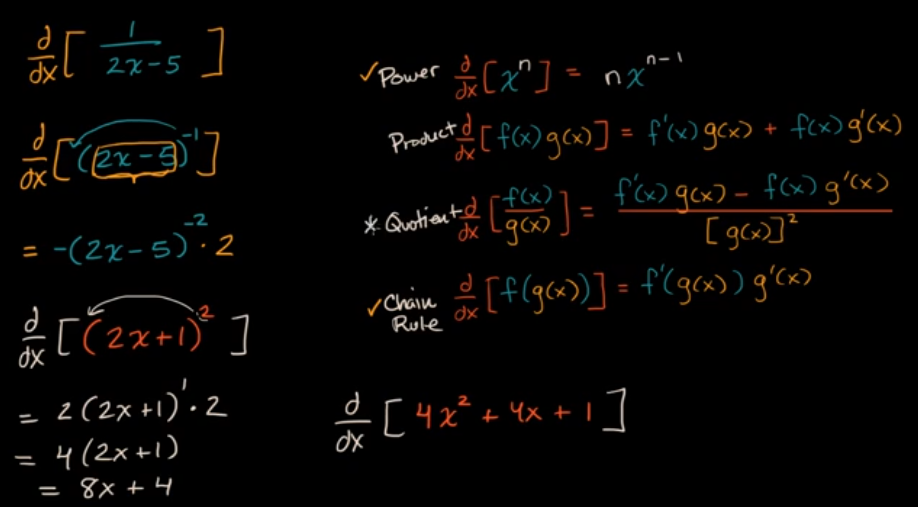 d/dx [ 1/(2x-5) ]
d/dx [ (2x-5)⁻¹ ]
= -(2x-5)⁻² · 2
d/dx [ (2x+1)² ]
= 2(2x+1)¹ · 2
= 4(2x+1)
= 8x + 4
✓ Power d/dx [xⁿ] = n xⁿ⁻¹
Product d/dx [f(x) g(x)] = f'(x) g(x) + f(x) g'(x)
* Quotient d/dx [f(x)/g(x)] = (f'(x) g(x) - f(x) g'(x))/[g(x)]²
✓ Chain d/dx [f(g(x))] = f'(g(x)) g'(x)
Rule
d/dx [ 4x² + 4x + 1 ]